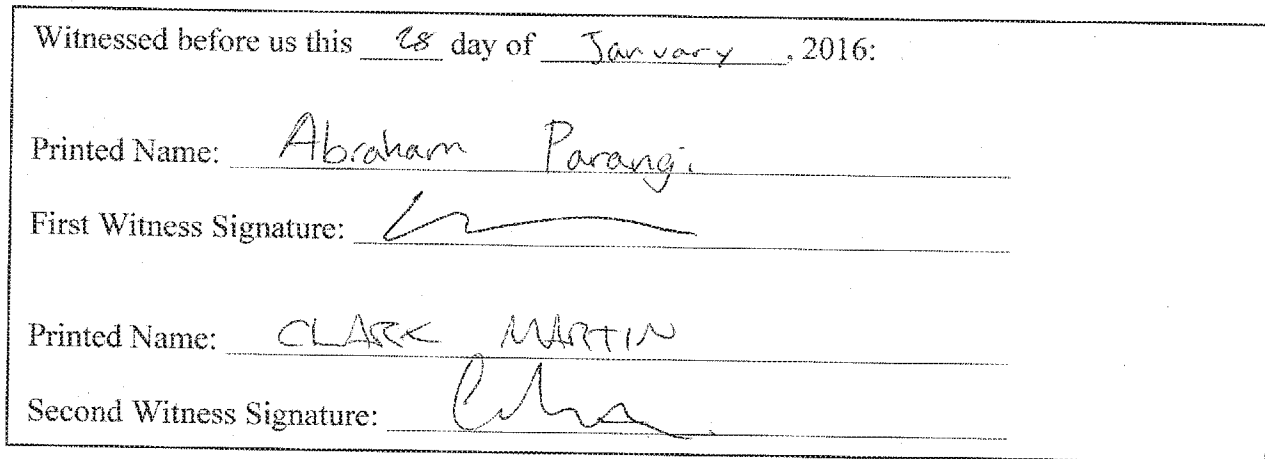 Witnessed before us this 28 day of January, 2016:
Printed Name: Abraham Parangi
First Witness Signature:
Printed Name: CLARK MARTIN
Second Witness Signature: